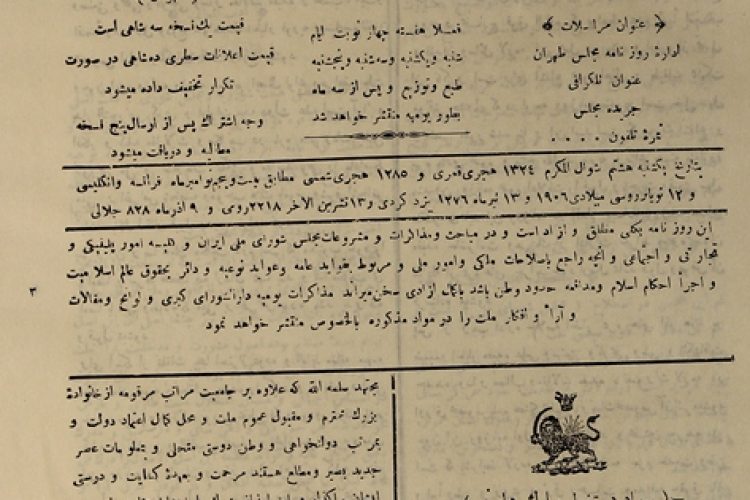 ﴿ عنوان مراسلات ﴾
ادارهٔ روز نامه مجلس طهران
عنوان تلگرافی
جریده مجلس
نمرهٔ تلفون . . . .
فعلا هفته چهار نوبت ایام
شنبه و یکشنبه و سه شنبه و پنجشنبه
طبع و توزیع و پس از سه ماه
بطور یومیه منتشر خواهد شد
قیمت یك نسخه سه شاهی است
قیمت اعلانات سطری ده شاهی در صورت
تکرار تخفیف داده میشود
وجه اشتراك پس از ارسال پنج نسخه
مطالبه و دریافت میشود
بتاریخ یکشنبه هشتم شوال المکرم ۱۳۲۴ هجری قمری و ۱۲۸۵ هجری شمسی مطابق بیست و پنجم نوامبر ماه فرانسه و انگلیسی
و ۱۲ نویابر روسی میلادی ۱۹۰۶ و ۱۳ تیر ماه ۱۲۷۶ یزد گردی و ۱۳ تشرین الاخر ۲۲۱۸ رومی و ۹ آذر ماه ۸۲۸ جلالی
این روز نامه بکلی مطلق و ازاد است و در مباحث و مذاکرات و مشروعات مجلس شورای ملی ایران و کلیه امور پلیتیکی و
تجارتی و اجتماعی و آنچه راجع باصلاحات ملکی و امور ملی و مربوط بفواید عامه و عواید نوعیه و دائر بحقوق عالم اسلامیت
و اجرأ احکام اسلام و مدافعه حدود وطن باشد باکمال ازادی سخن میراند مذاکرات یومیه دارالشورای کبری و لوایح و مقالات
و آرأ و افکار ملت را در مواد مذکوره بالخصوص منتشر خواهد نمود
۳
مجتهد سلمه الله که علاوه بر جامعیت مراتب مرقومه از خانوادهٔ
بزرك محترم و مقبول عموم ملت و محل کمال اعتماد دولت و
بمراتب دولتخواهی و وطن دوستی متحلی و بمعلومات عصر
جدید بصیر و مطلع هستند مرحمت و بعهدهٔ کفایت و دوستی